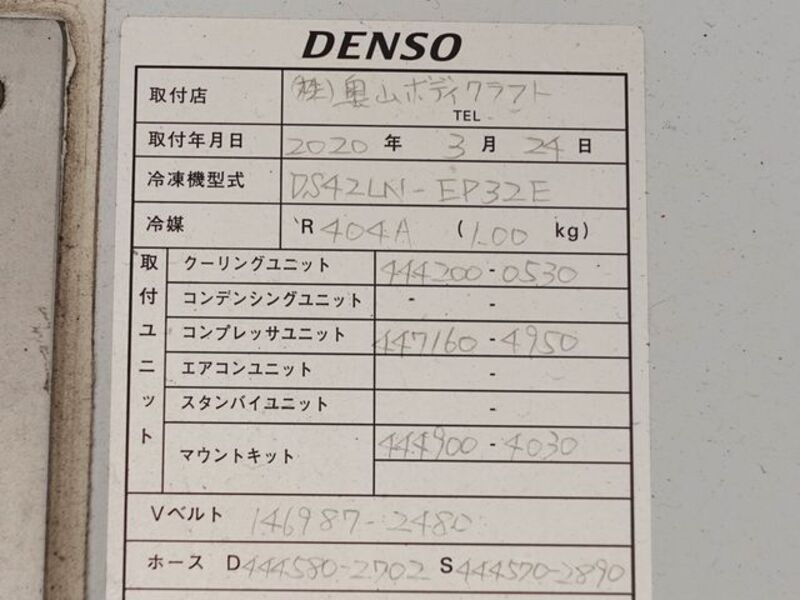 DENSO
取付店 (株)奥山ボディクラフト
TEL
取付年月日 2020年 3月 24日
冷凍機型式 DS42LN-EP32E
冷媒 R 404A (1.00 kg)
取付ユニット
クーリングユニット 444200-0530
コンデンシングユニット - -
コンプレッサユニット 447160-4950
エアコンユニット -
スタンバイユニット -
マウントキット 444900-4030
Vベルト 146987-2480
ホース D444580-2702 S444570-2890